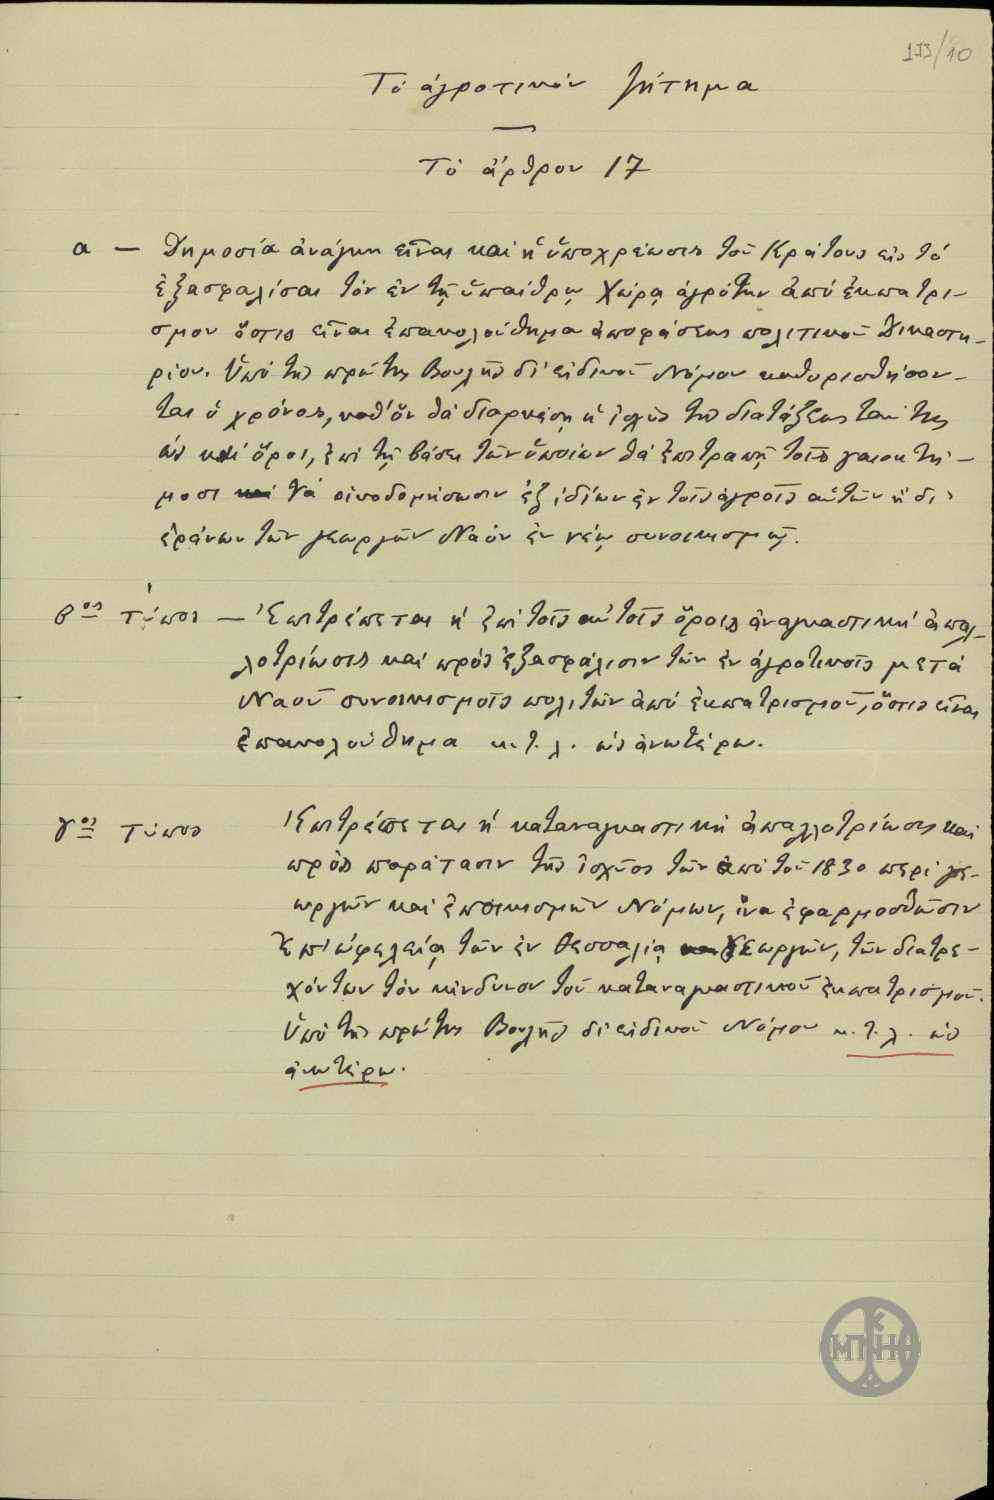 173/10
Τό ἀγροτικόν ζήτημα
Τό ἄρθρον 17
α — Δημοσία ἀνάγκη εἶναι καί ἡ ὑποχρέωσις τοῦ Κράτους εἰς τό
ἐξασφαλίσαι τόν ἐν τῇ ὑπαίθρῳ χώρᾳ ἀγρότην ἀπό ἐκπατρι-
σμόν ὅστις εἶναι ἐπακολούθημα ἀποφάσεως πολιτικοῦ Δικαστη-
ρίου. Ὑπό τῆς πρώτης Βουλῆς δι' εἰδικοῦ Νόμου καθορισθήσον-
ται ὁ χρόνος, καθ' ὅν θά διαρκέσῃ ἡ ἰσχύς τῆς διατάξεως ταύτης
ὡς καί ὅροι, ἐπί τῇ βάσει τῶν ὁποίων θά ἐπιτραπῇ τοῖς γαιοκτή-
μοσι νά οἰκοδομήσωσιν ἐξ ἰδίων ἐν τοῖς ἀγροῖς αὐτῶν ἤ δι'
ἐράνων τῶν γεωργῶν Ναόν ἐν νέῳ συνοικισμῷ.
βος τύπος — Ἐπιτρέπεται ἡ ἐπί τοῖς αὐτοῖς ὅροις ἀναγκαστική ἀπαλ-
λοτρίωσις καί πρός ἐξασφάλισιν τῶν ἐν ἀγροτικοῖς μετά
Ναοῦ συνοικισμοῖς πολιτῶν ἀπό ἐκπατρισμοῦ, ὅστις εἶναι
ἐπακολούθημα κ.τ.λ. ὡς ἀνωτέρω.
γος τύπος Ἐπιτρέπεται ἡ καταναγκαστική ἀπαλλοτρίωσις καί
πρός παράτασιν τῆς ἰσχύος τῶν ἀπό τοῦ 1830 περί γε-
ωργῶν καί ἐποικισμῶν Νόμων, ἵνα ἐφαρμοσθῶσιν
ἐπ' ὠφελείᾳ τῶν ἐν Θεσσαλίᾳ γεωργῶν, τῶν διατρε-
χόντων τόν κίνδυνον τοῦ καταναγκαστικοῦ ἐκπατρισμοῦ.
Ὑπό τῆς πρώτης Βουλῆς δι' εἰδικοῦ Νόμου κ.τ.λ. ὡς
ἀνωτέρω.
ΜΠΝΗΚ